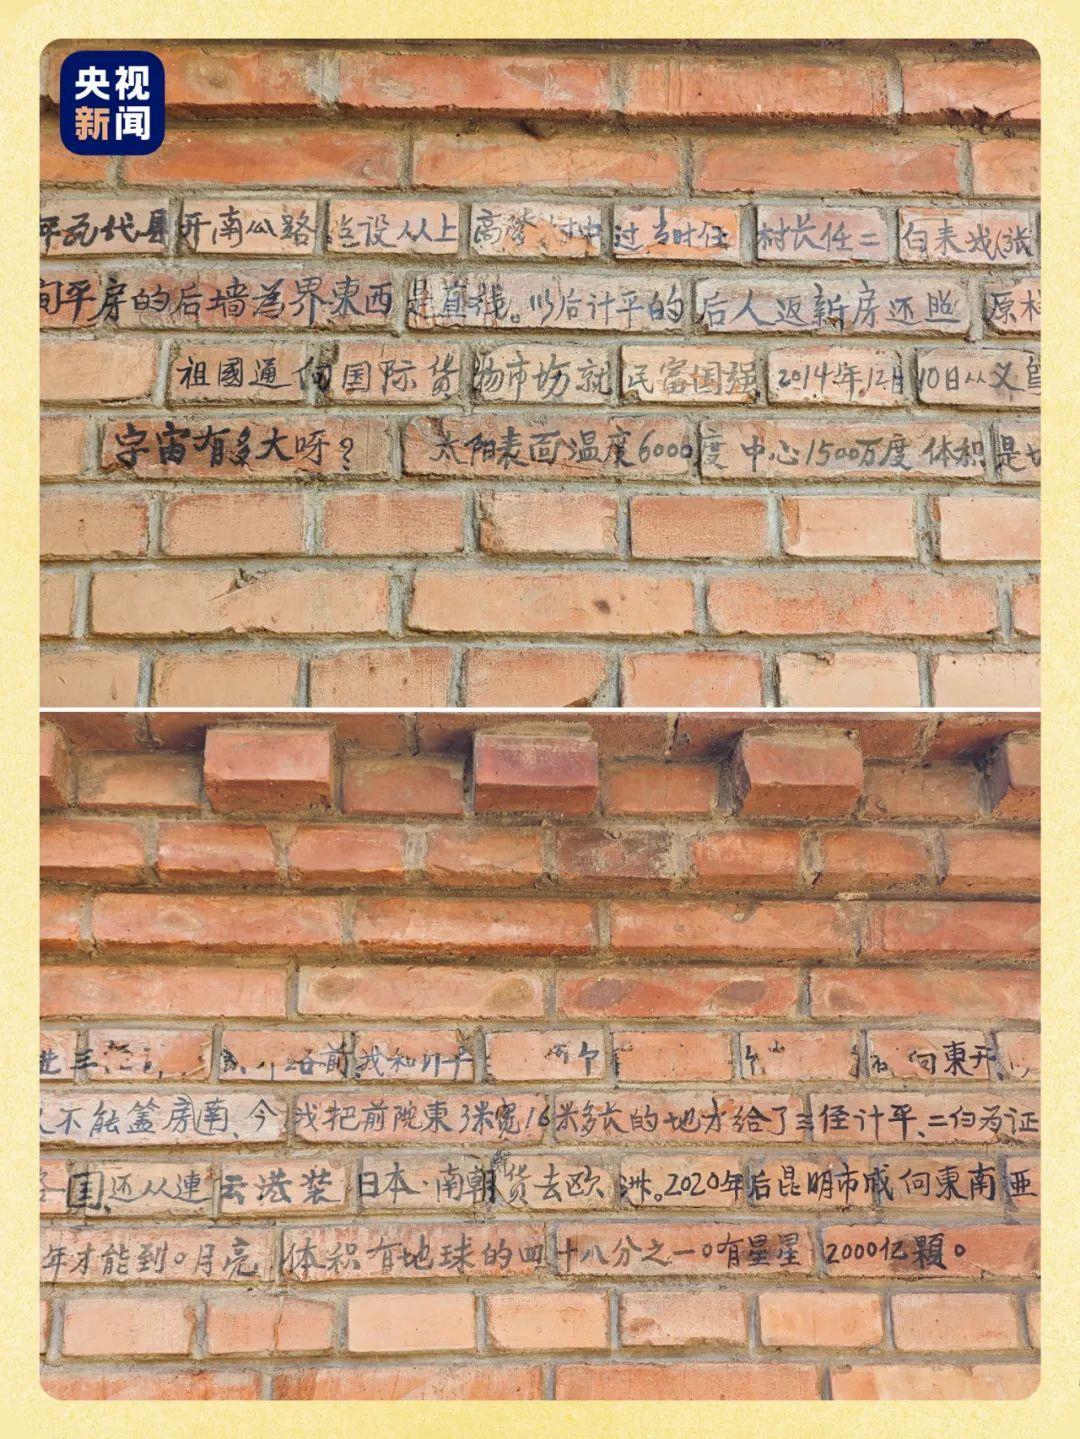 央视
新闻
开南公路 当设从上 过 当时任 村长任二
间平房的后墙為界東西是直线。以后计平的后人返新房还照原
祖國通向国际货物市场就民富国强2014年12月10日从义
宇宙有多大呀？ 太阳表面温度6000度中心1500万度体积是
三 路前.我和计平 向東开
不能盖房南、今我把前院東3米宽16米多长的地方给了三侄计平、二们为证
国.还从連云港装日本·南朝鲜货去欧洲。2020年后昆明市成向東南亚
年才能到。月亮体积有地球的四十八分之一。有星星2000亿颗。